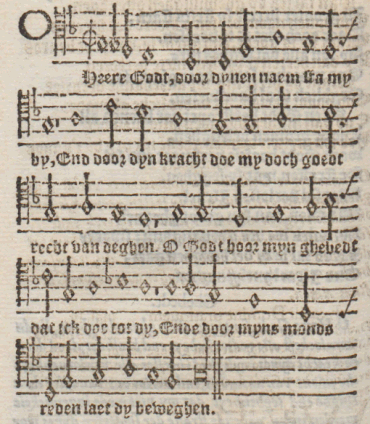 O
Heere Godt, door dynen naem sta my
by, End door dyn kracht doe my doch goedt
recht van deghen. O Godt hoor myn ghebedt
dat ick doe tot dy, Ende door myns monds
reden laet dy beweghen.